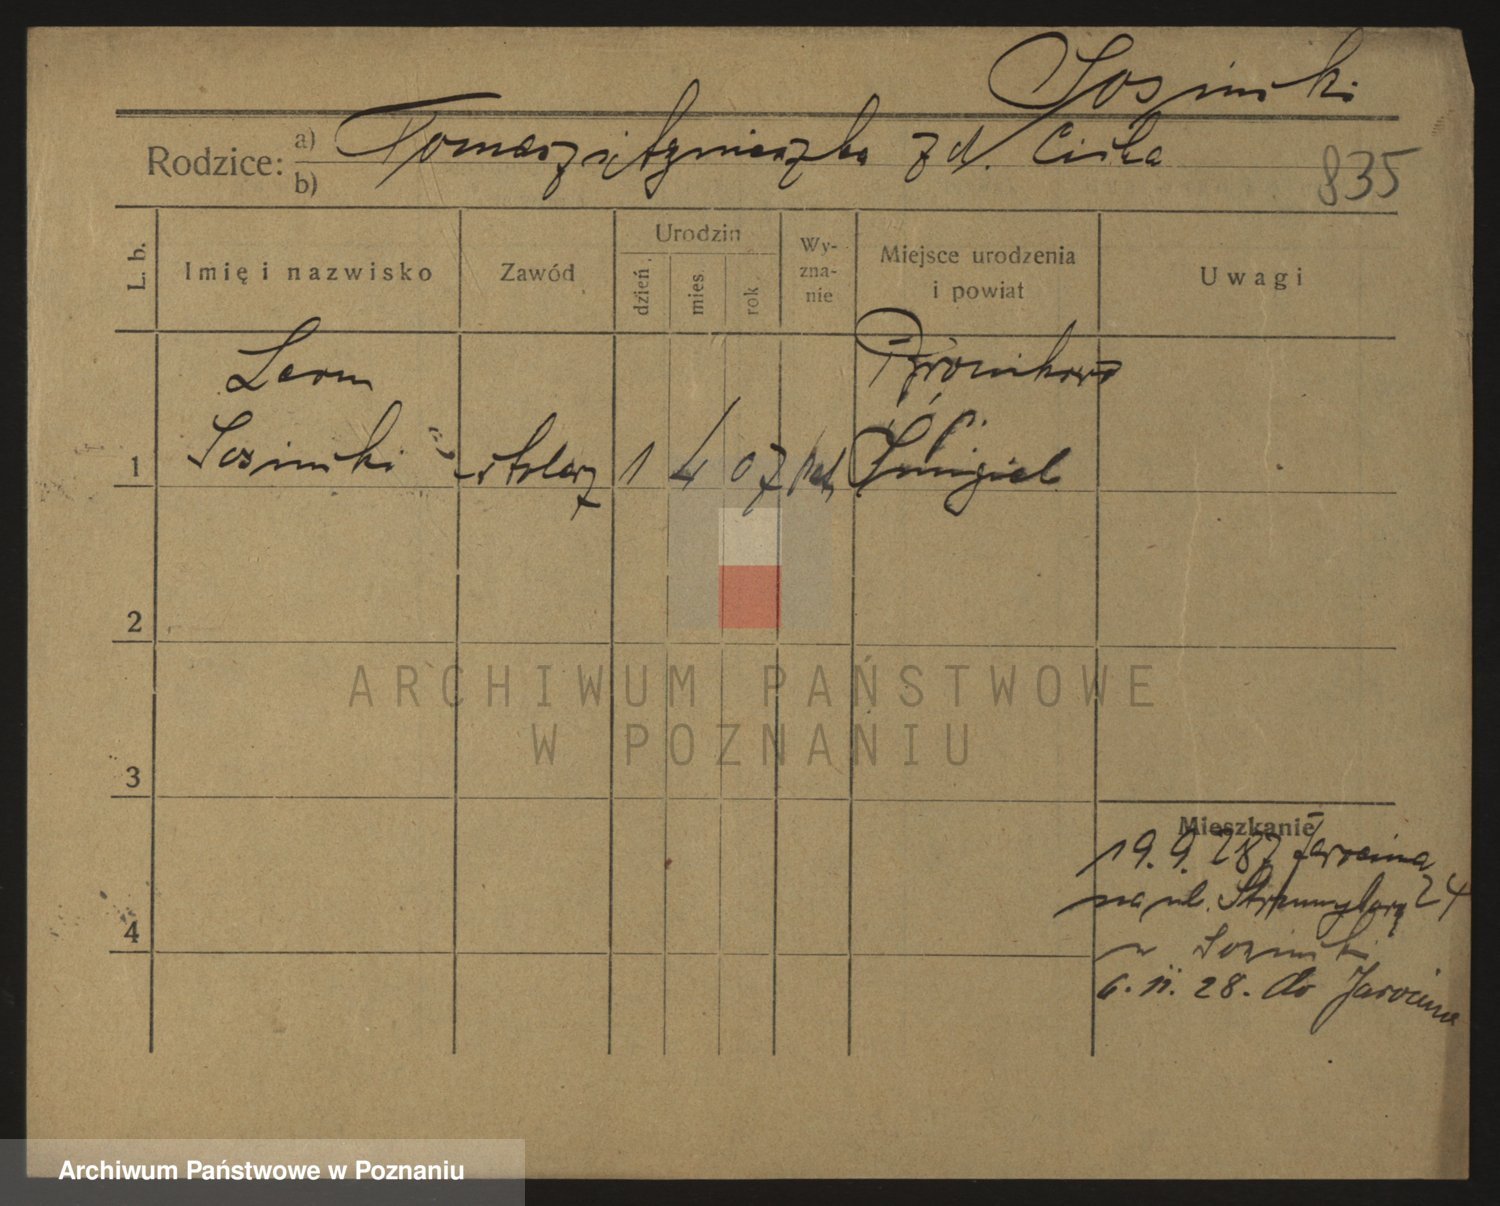 Sosiński
Rodzice: a) Tomasz i Agnieszka z d. Cicha
b)
835
L. b.
Imię i nazwisko
Zawód
Urodzin
dzień.
mies.
rok
Wy-
zna-
nie
Miejsce urodzenia
i powiat
Uwagi
Leon
Bronikowo
1 Sosiński stolarz 1 4 07 kat Śmigiel
2
3
4
Mieszkanie
19. 9. 28 z Jarocina
na ul. 24
Sosiński
6. 11. 28. do Jarocina
ARCHIWUM PAŃSTWOWE
W POZNANIU
Archiwum Państwowe w Poznaniu